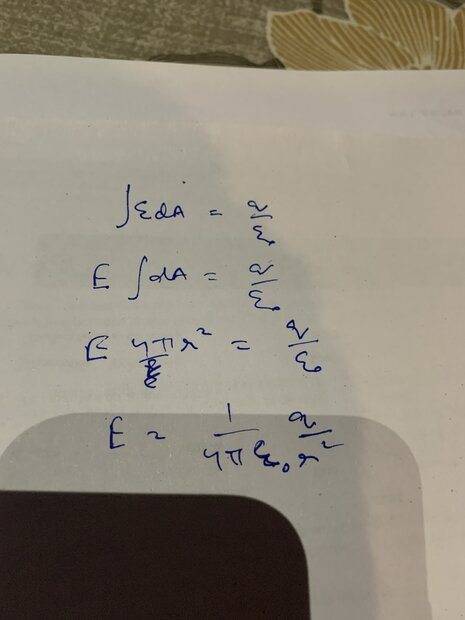 ∫EdA = q/ε₀
E ∫dA = q/ε₀
E 4πr² = q/ε₀
E = 1/4πε₀ q/r²